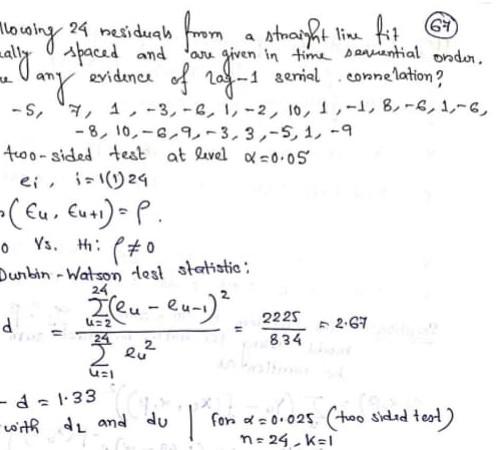 llowing 24 residuals from a straight line fit 67
ally spaced and are given in time sequential order.
any evidence of lag-1 serial correlation?
-5, 7, 1, -3, -6, 1, -2, 10, 1, -1, 8, -6, 1, -6,
-8, 10, -6, 9, -3, 3, -5, 1, -9
two-sided test at level α=0.05
ei, i=1(1)24
(Eu, Eu+1) = ρ.
0 Vs. H1: ρ≠0
Durbin-Watson test statistic:
d = 24Σu=2 (eu - eu-1)² / 24Σu=1 eu² = 2225/834 = 2.67
- d = 1.33
with dL and dU | for α=0.025 (two sided test)
n=24, k=1